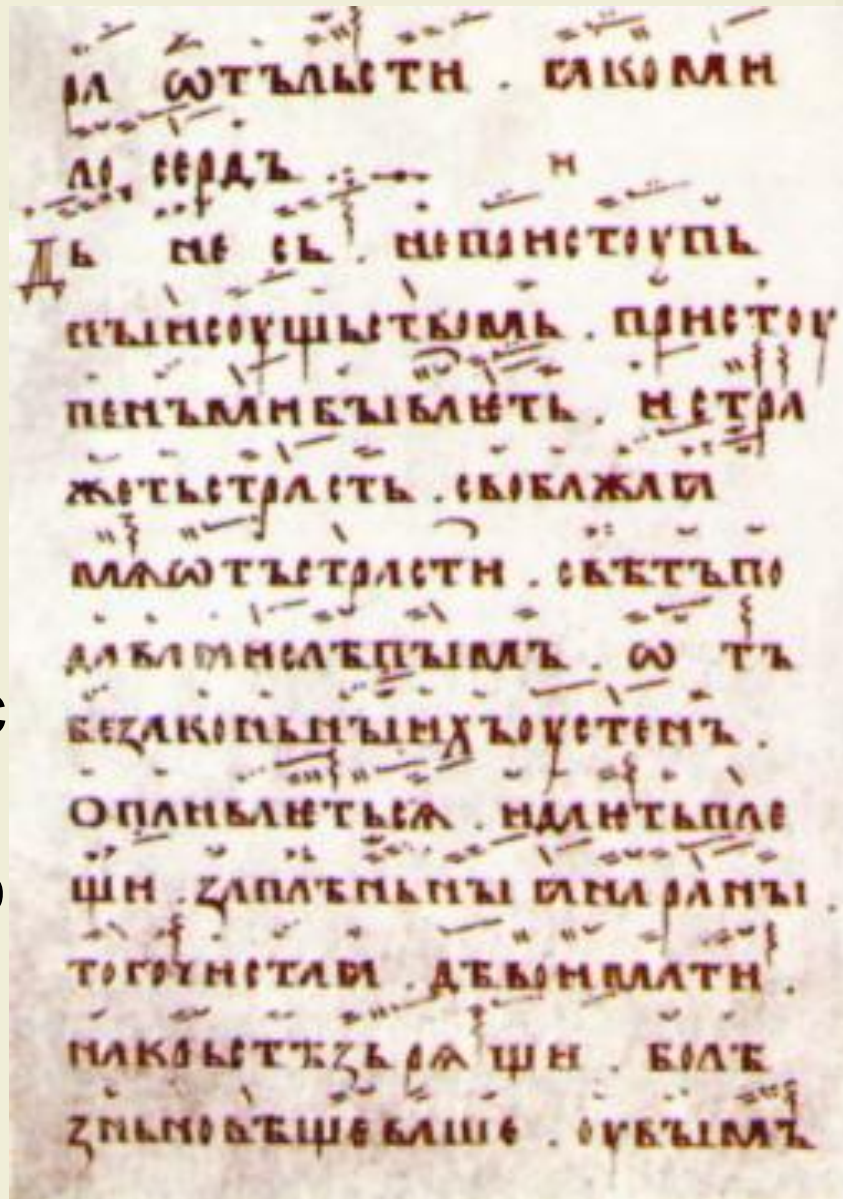 ра ѡтъльсти . ꙗкоми
ло сердъ
н
Дь не сь . непристоупь
ныисоущьствомь . пристоу
пенъмибываѥть . и стра
жетьстрасть . свобажаꙗ
мѧѡтъстрасти . свѣтъпо
даваꙗислѣпымъ . ѡ тъ
беꙁаконьныихъоустенъ .
идаѥтьпле
щи . ꙁаплѣньныꙗнараны .
тогочистаꙗ . дѣвоимати .
накрьстѣꙁьрѧщи . болѣ
ꙁньновѣщеваше . оувымъ